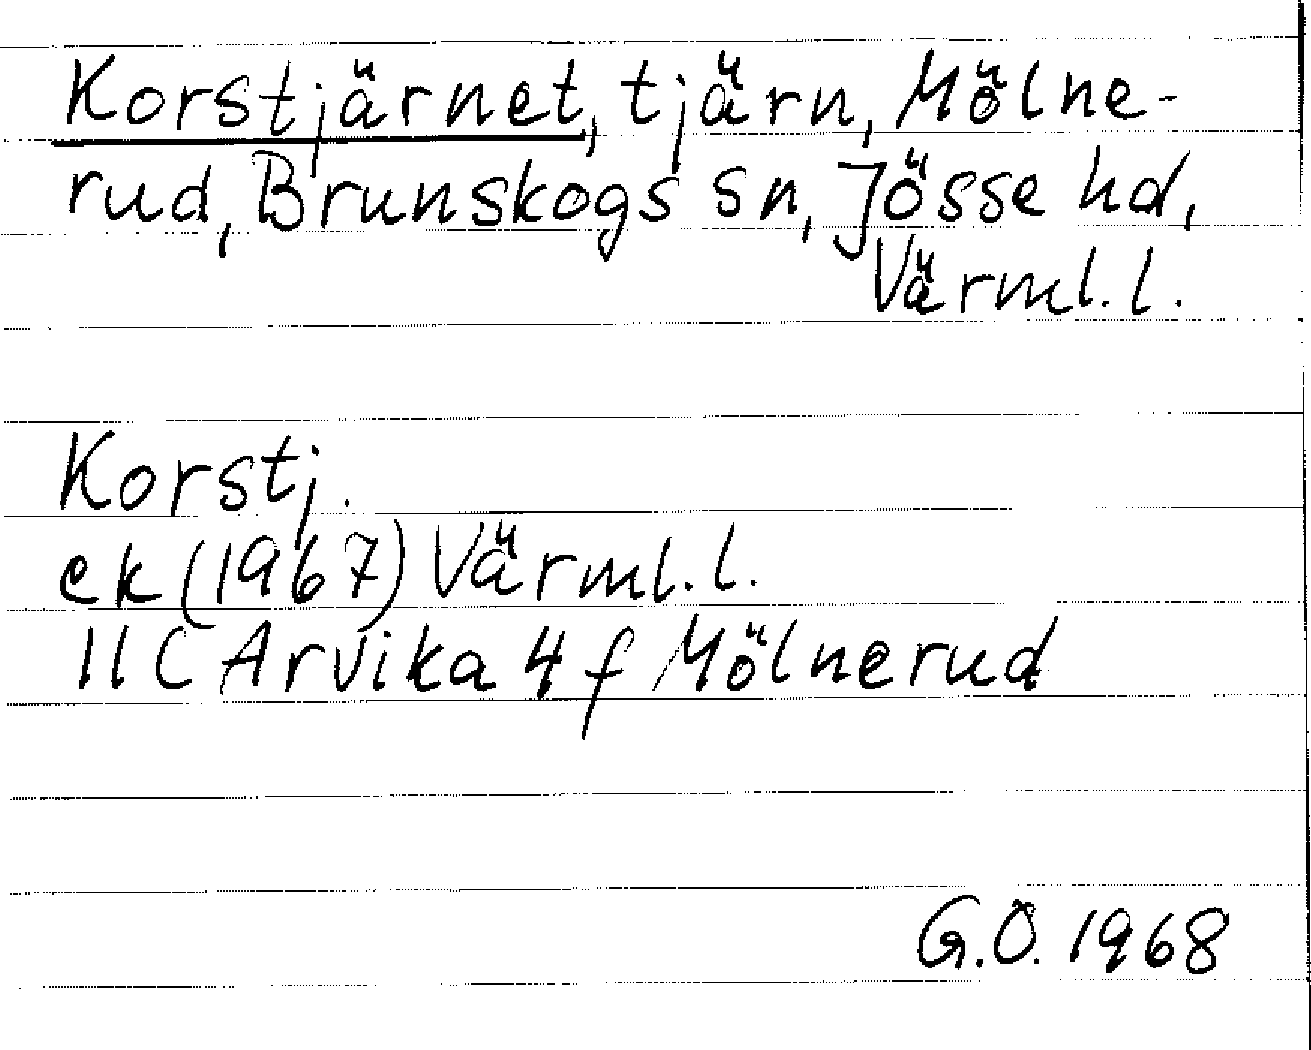 Korstjärnet, tjärn, Mölne-
rud, Brunskogs sn, Jösse hd,
Värml.l.
Korstj.
ek (1967) Värml.l.
11C Arvika 4f Mölnerud
G.Ö. 1968